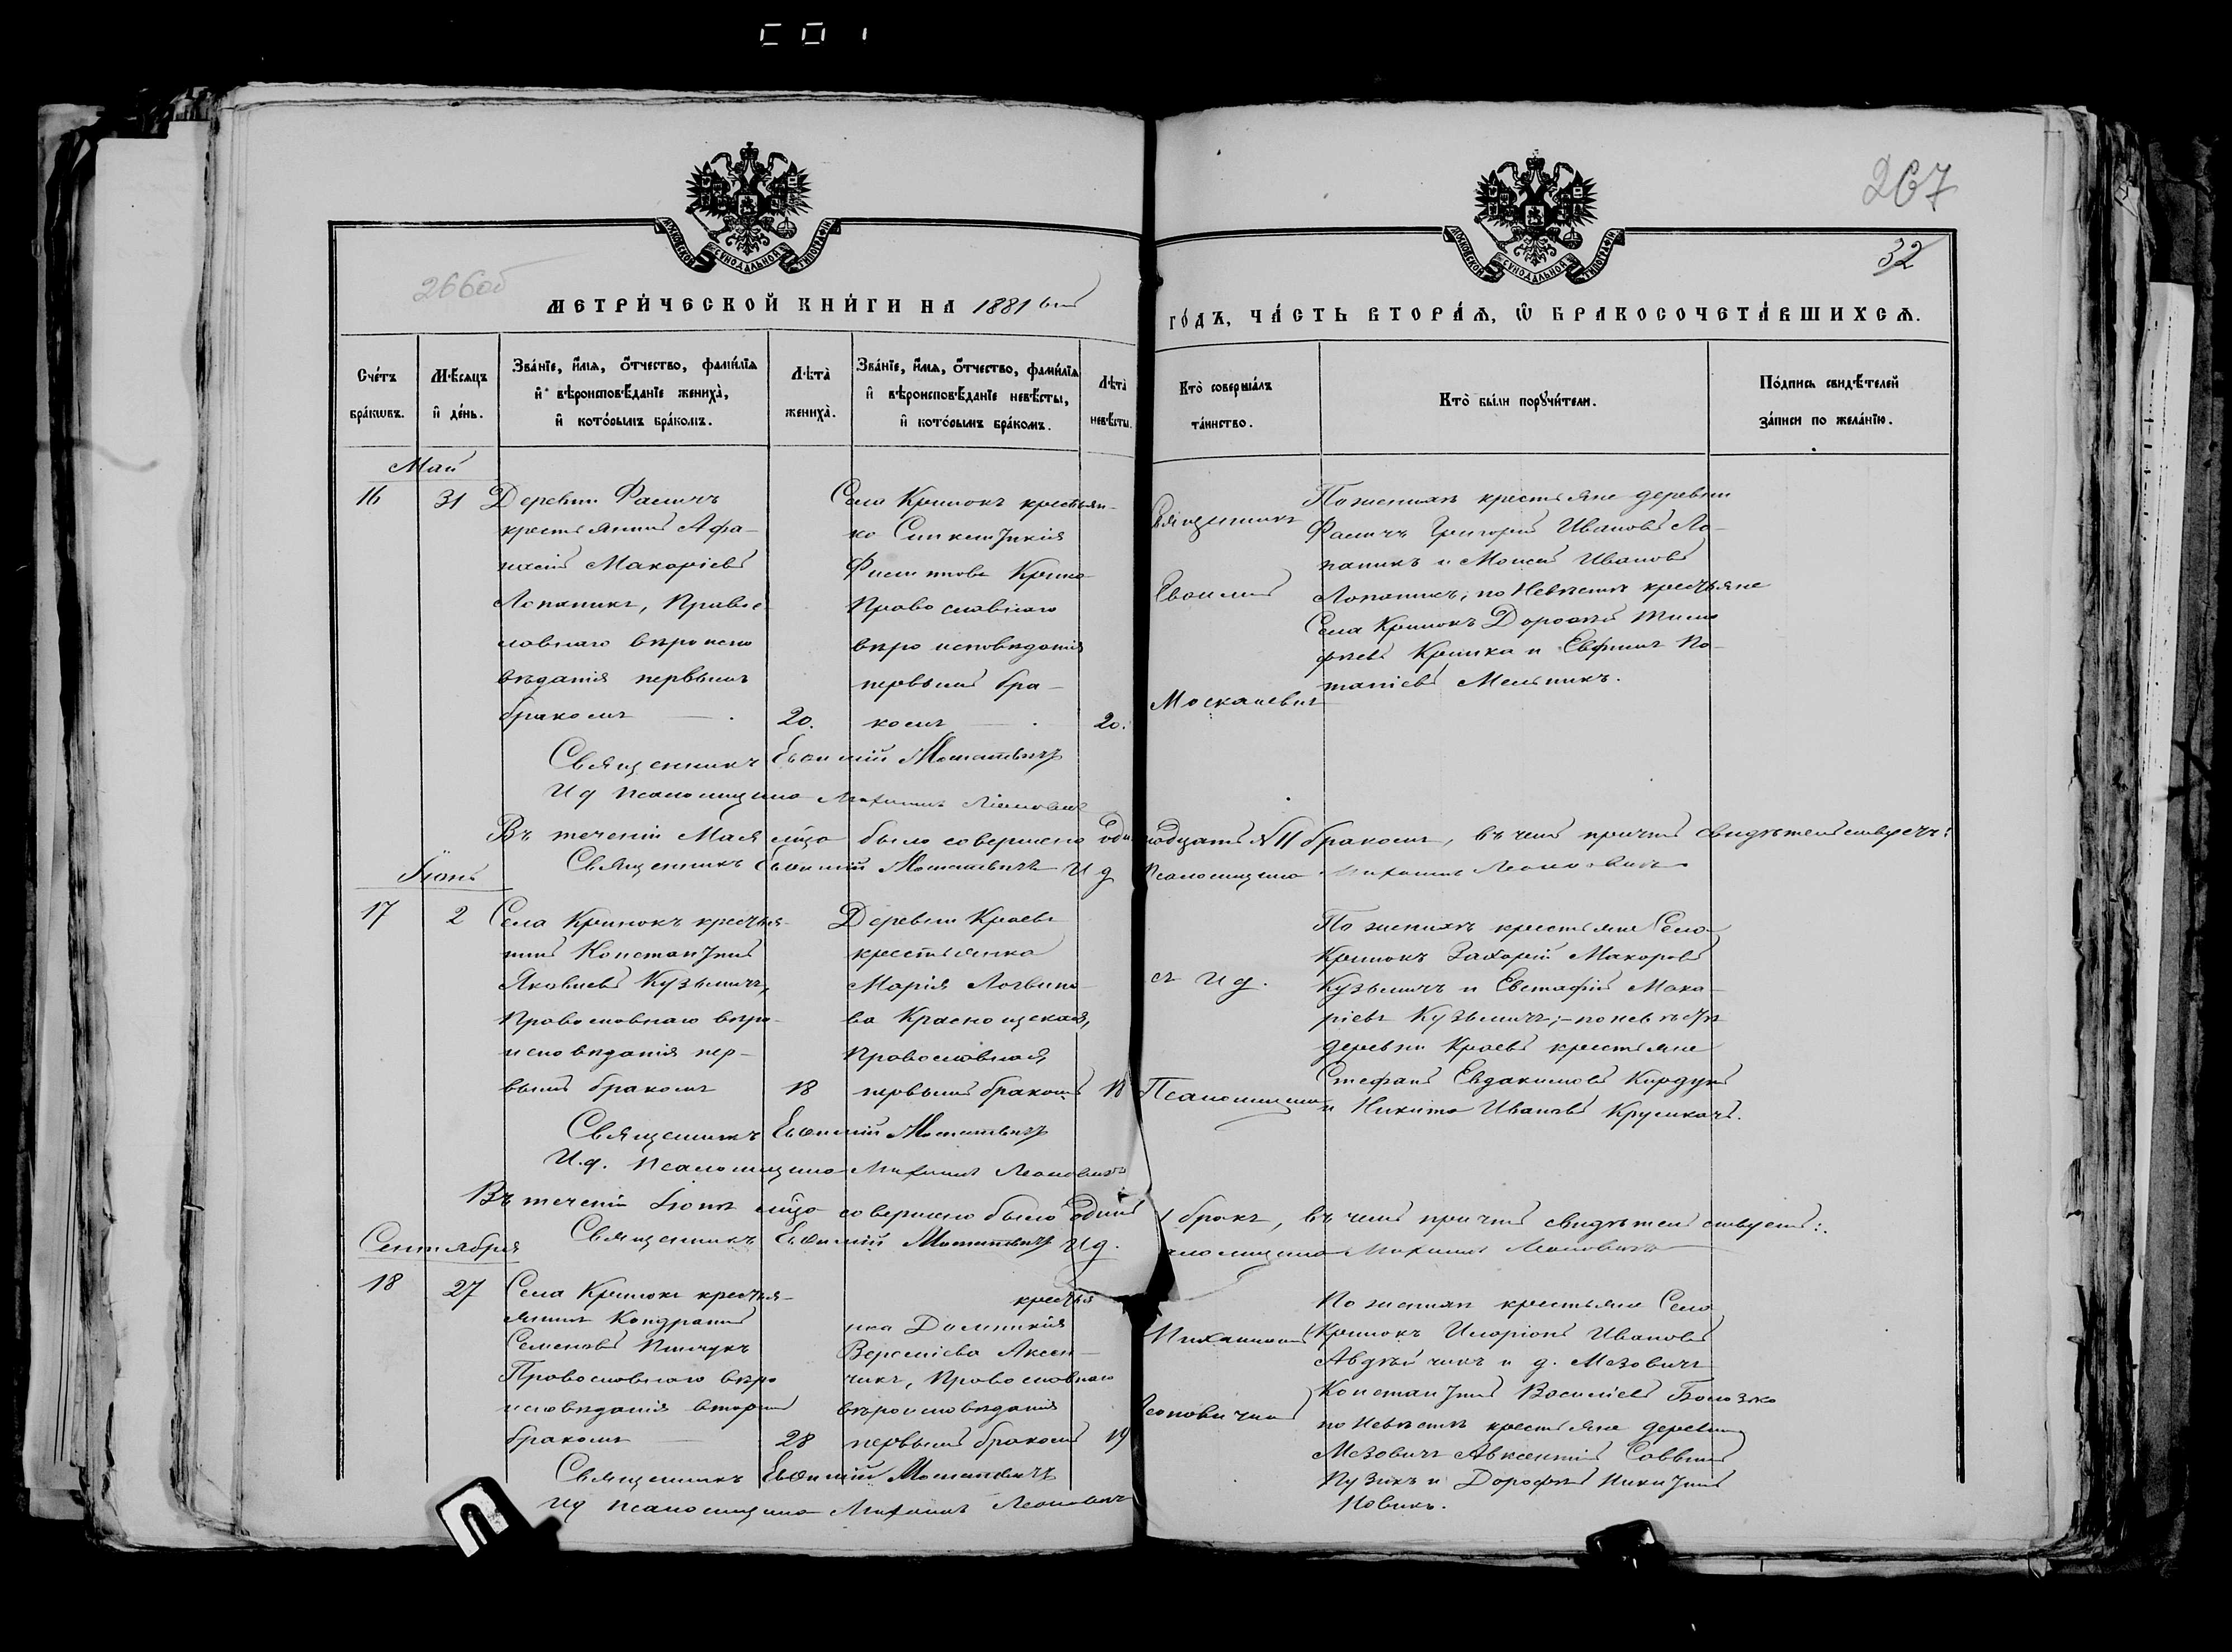 267
32
266об
МОСКОВСКОЙ СѴНОДАЛЬНОЙ ТИПОГРАФІИ
МОСКОВСКОЙ СѴНОДАЛЬНОЙ ТИПОГРАФІИ
МЕТРИ́ЧЕСКОЙ КНИ́ГИ НА 1881 ГО́ДЪ, ЧА́СТЬ ВТОРА́Я, Ѿ БРАКОСОЧЕТА́ВШИХСЯ.
Сче́тъ бра́кωвъ.
Мѣ́сяцъ и де́нь.
Зва́нїе, и́мя, о́тчество, фами́лїя и вѣроисповѣ́данїе жениха̀, и кото́рымъ бра́комъ.
Лѣта̀ жениха̀.
Зва́нїе, и́мя, о́тчество, фами́лїя и вѣроисповѣ́данїе невѣ́сты, и кото́рымъ бра́комъ.
Лѣта̀ невѣ́сты.
Кто̀ соверша́лъ та́инство.
Кто̀ бы́ли порꙋчи́тели.
По́дпись свидѣ́телей за́писи по жела́нїю.
Май
16
31
Деревни
крестьянинъ Афа-
насій Макаріевъ
Лопаникъ, Правос-
лавнаго вѣроиспо
вѣданія первымъ
бракомъ
20.
Села Кринокъ крестьян-
ка
Православнаго
вѣроисповѣданія
первымъ бра-
комъ
20.
Священникъ
Евѳимій
По женихѣ крестьяне деревни
Григорій Ивановъ Ло-
паникъ и Моисей Ивановъ
Лопаникъ; по Невѣстѣ крестьяне
Села Кринокъ Дороѳей Тимо
феевъ и Евфимъ По-
тапіевъ Мельникъ.
Священникъ Евѳимій
И д псаломщика Михаилъ
Въ теченіи Мая м-ца было совершено одиннадцать №11 бракомъ, въ чемъ причтъ свидѣтельствуетъ:
Священникъ Евѳимій И д Псаломщика Михаилъ Леоновичъ
Іюнь
17
2
Села Кринокъ крестья-
нинъ Константинъ
Яковлевъ Кузьмичъ,
Православнаго вѣро-
исповѣданія пер-
вымъ бракомъ
18
Деревни Краевъ
крестьянка
Марія Логвино-
ва
Православная,
первымъ бракомъ
18
съ И д.
Псаломщика
По женихѣ крестьяне Села
Кринокъ Захарій Макаровъ
Кузьмичъ и Евстафій Мака-
ріевъ Кузьмичъ; – по невѣстѣ
деревни Краевъ крестьяне
Стефанъ Евдокимовъ
и Никита Ивановъ
Священникъ Евѳимій
И.д. псаломщика Михаилъ Леоновичъ
Въ теченіи Іюня м-ца совершено было одинъ 1 бракъ, въ чемъ причтъ свидѣтельствуетъ:
Священникъ Евѳимій И д. Псаломщика Михаилъ Леоновичъ
Сентября
18
27
Села Кринокъ крестья-
янинъ Кондратій
Семеновъ Пинчукъ
Православнаго вѣро
исповѣданія вторымъ
бракомъ
28
крестья
нка Домникія
Веремѣева Аксен-
чикъ, Православнаго
вѣроисповѣданія
первымъ бракомъ
19
Михаиломъ
Леоновичемъ
По женихѣ крестьяне Села
Кринокъ Иларіонъ Ивановъ
Авдѣйчикъ и д. Мезовичъ
Константинъ Василіевъ
по Невѣстѣ крестьяне деревни
Мезовичъ Авксентій Саввинъ
Пузикъ и Дорофей Никитинъ
Новикъ.
Священникъ Евѳимій
И д псаломщика Михаилъ Леоновичъ